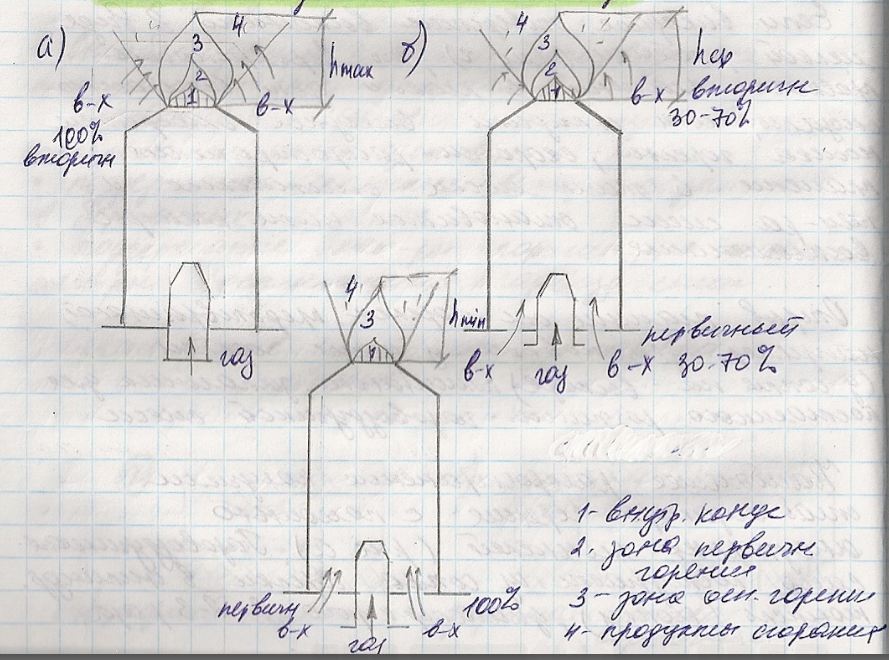 а)
4
3
2
1
hmax
в-х
в-х
100%
вторичн
газ
б)
4
3
2
1
hср
в-х
вторичн
30-70%
первичный
в-х
газ
в-х 30-70%
4
3
1
hmin
первичн
в-х
газ
в-х
100%
1- внутр. конус
2. зона первичн
горения
3 - зона осн. горения
4- продукты сгорания